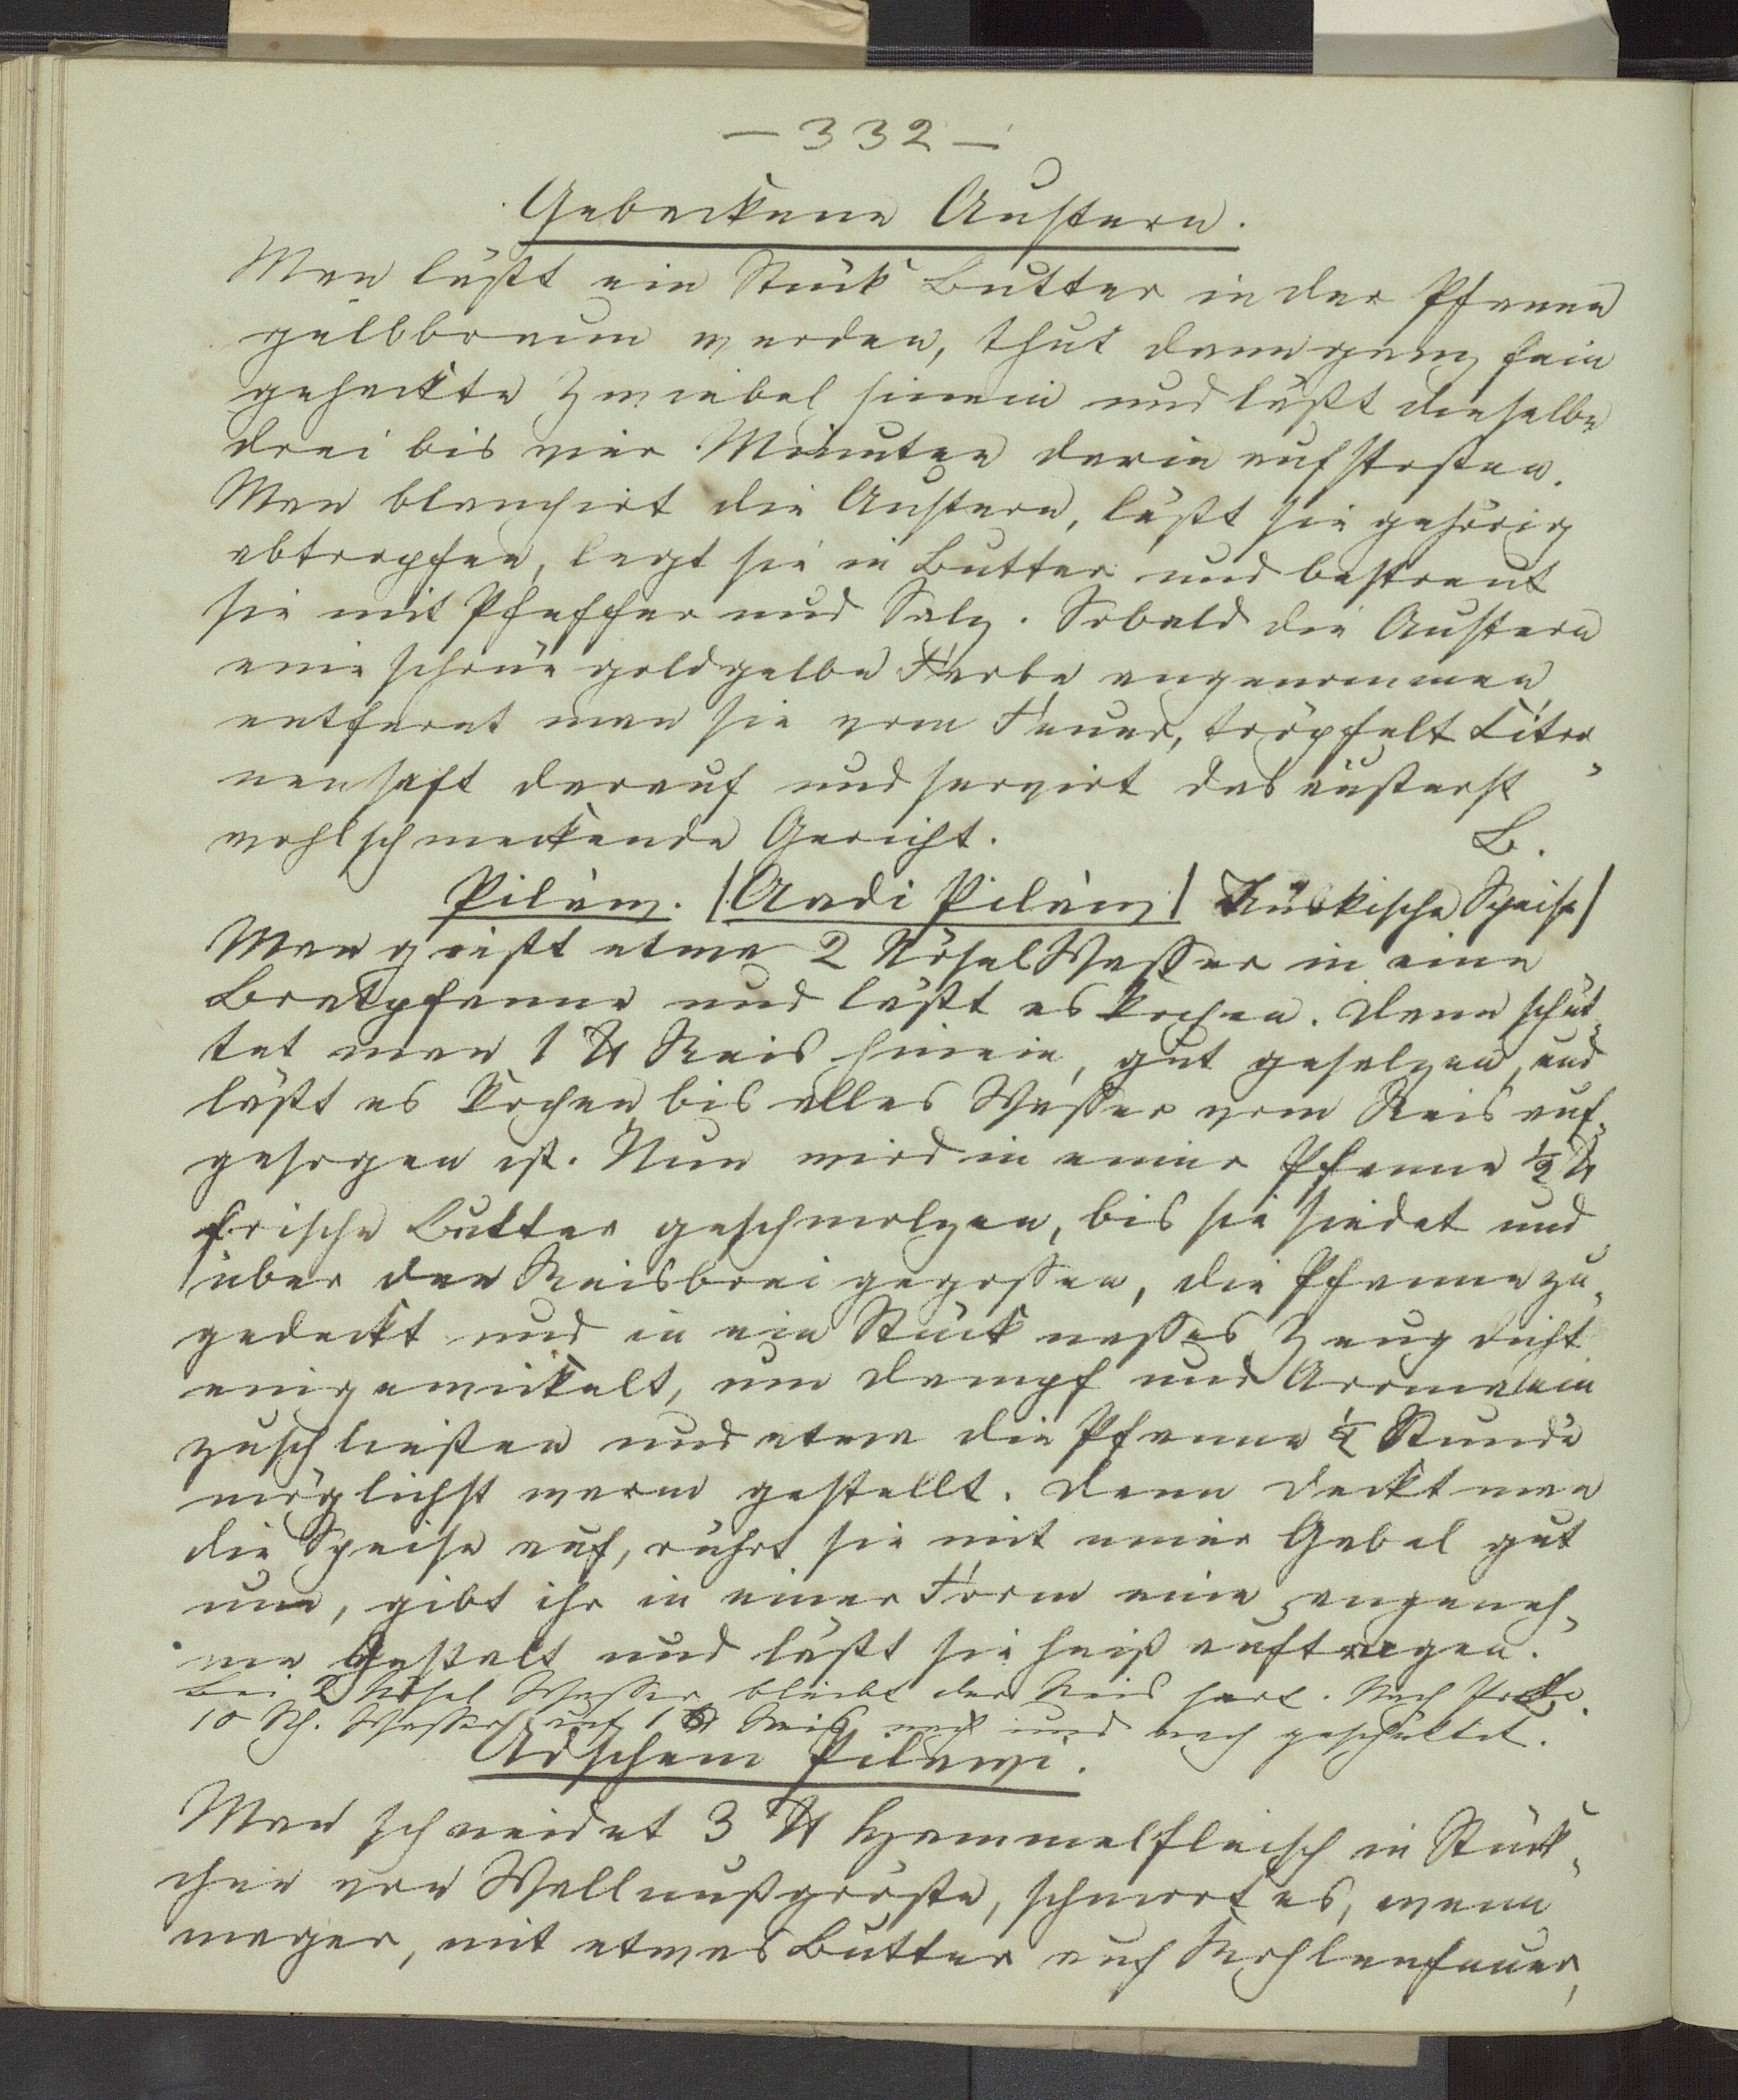 — 332 —
Gebackene Austern.
Man läßt ein Stück Butter in der Pfanne
gelbbraun werden, thut dann ganz fein
gehackte Zwiebel hinein und läßt dieselbe
drei bis vier Minuten darin aufstoßen.
Man blanchirt die Austern, läßt sie gehörig
abtropfen, legt sie in Butter und bestreut
sie mit Pfeffer und Salz. Sobald die Austern
eine schöne goldgelbe Farbe angenommen
entfernt man sie vom Feuer, tröpfelt Citro-
nensaft darauf und servirt das äußerst
wohlschmeckende Gericht. B.
Pilàw. /Aadi Pilàw/ Türkische Speise/
Man gießt etwa 2 Nösel Wasser in eine
Bratpfanne und läßt es kochen. Dann schüt-
tet man 1 ℔ Reis hinein, gut gesalzen, und
läßt es kochen, bis alles Wasser vom Reis auf-
gesogen ist. Nun wird in einer Pfanne ½ ℔
frische Butter geschmolzen, bis sie siedet und
über den Reisbrei gegossen, die Pfanne zu-
gedeckt und in ein Stück nasses Zeug dicht
eingewickelt, um Dampf und Aroma ein
zuschließen und etwa die Pfanne ¼ Stunde
möglichst warm gestellt. Dann deckt man
die Speise auf, rührt sie mit einer Gabel gut
um, gibt ihr in einer Form eine angeneh-
me Gestalt und läßt sie heiß auftragen.
Bei 2 Nösel Wasser bleibt der Reis hart. Nach Probe
10 Wasser auf 1 ℔ Reis nach und nach geschüttet.
Adschem Pilawi.
Man schneidet 3 ℔ Hammelfleisch in Stück-
chen von Wallnußgröße, schmort es, wenn
mager, mit etwas Butter auf Kohlenfeuer,